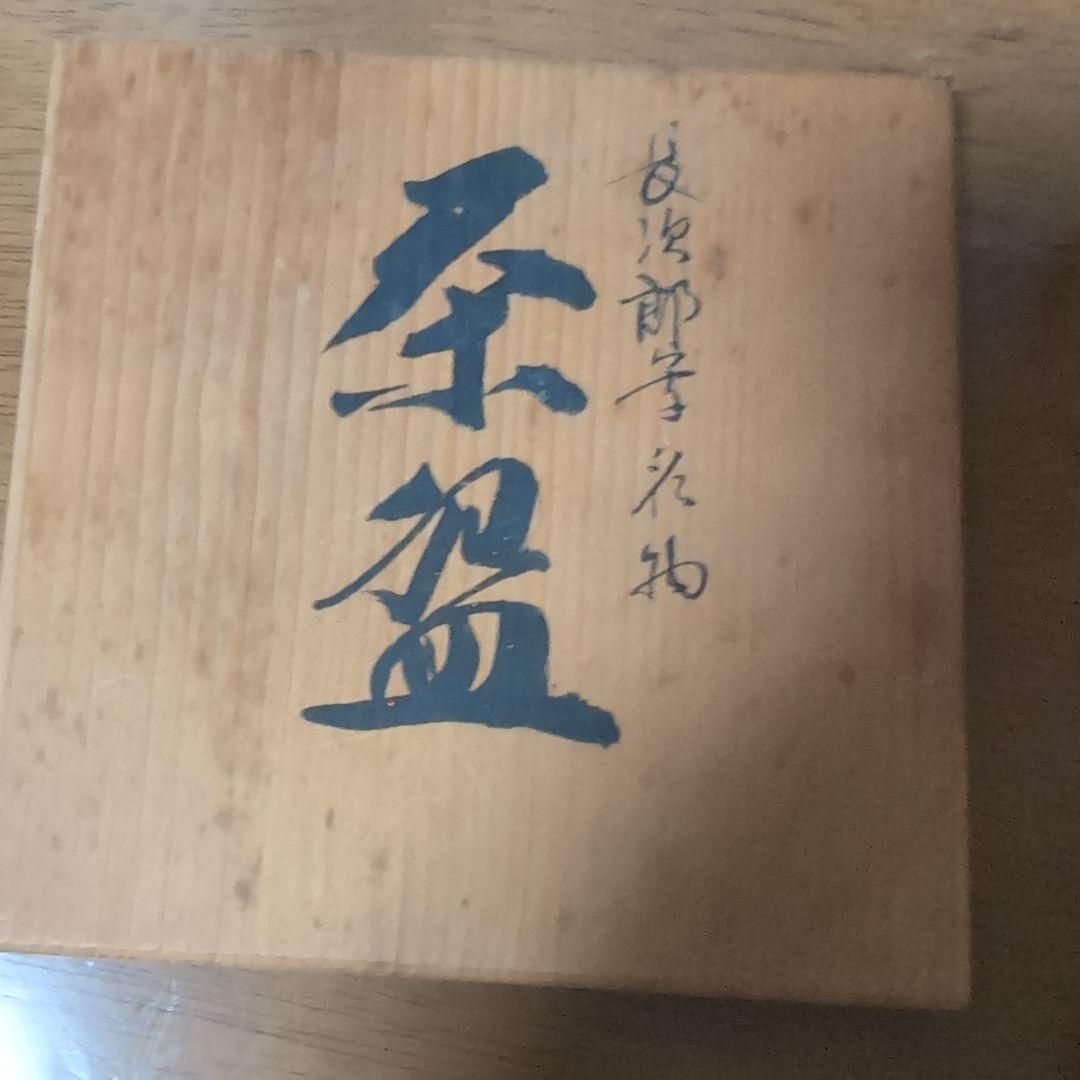 長次郎写名物
茶盌